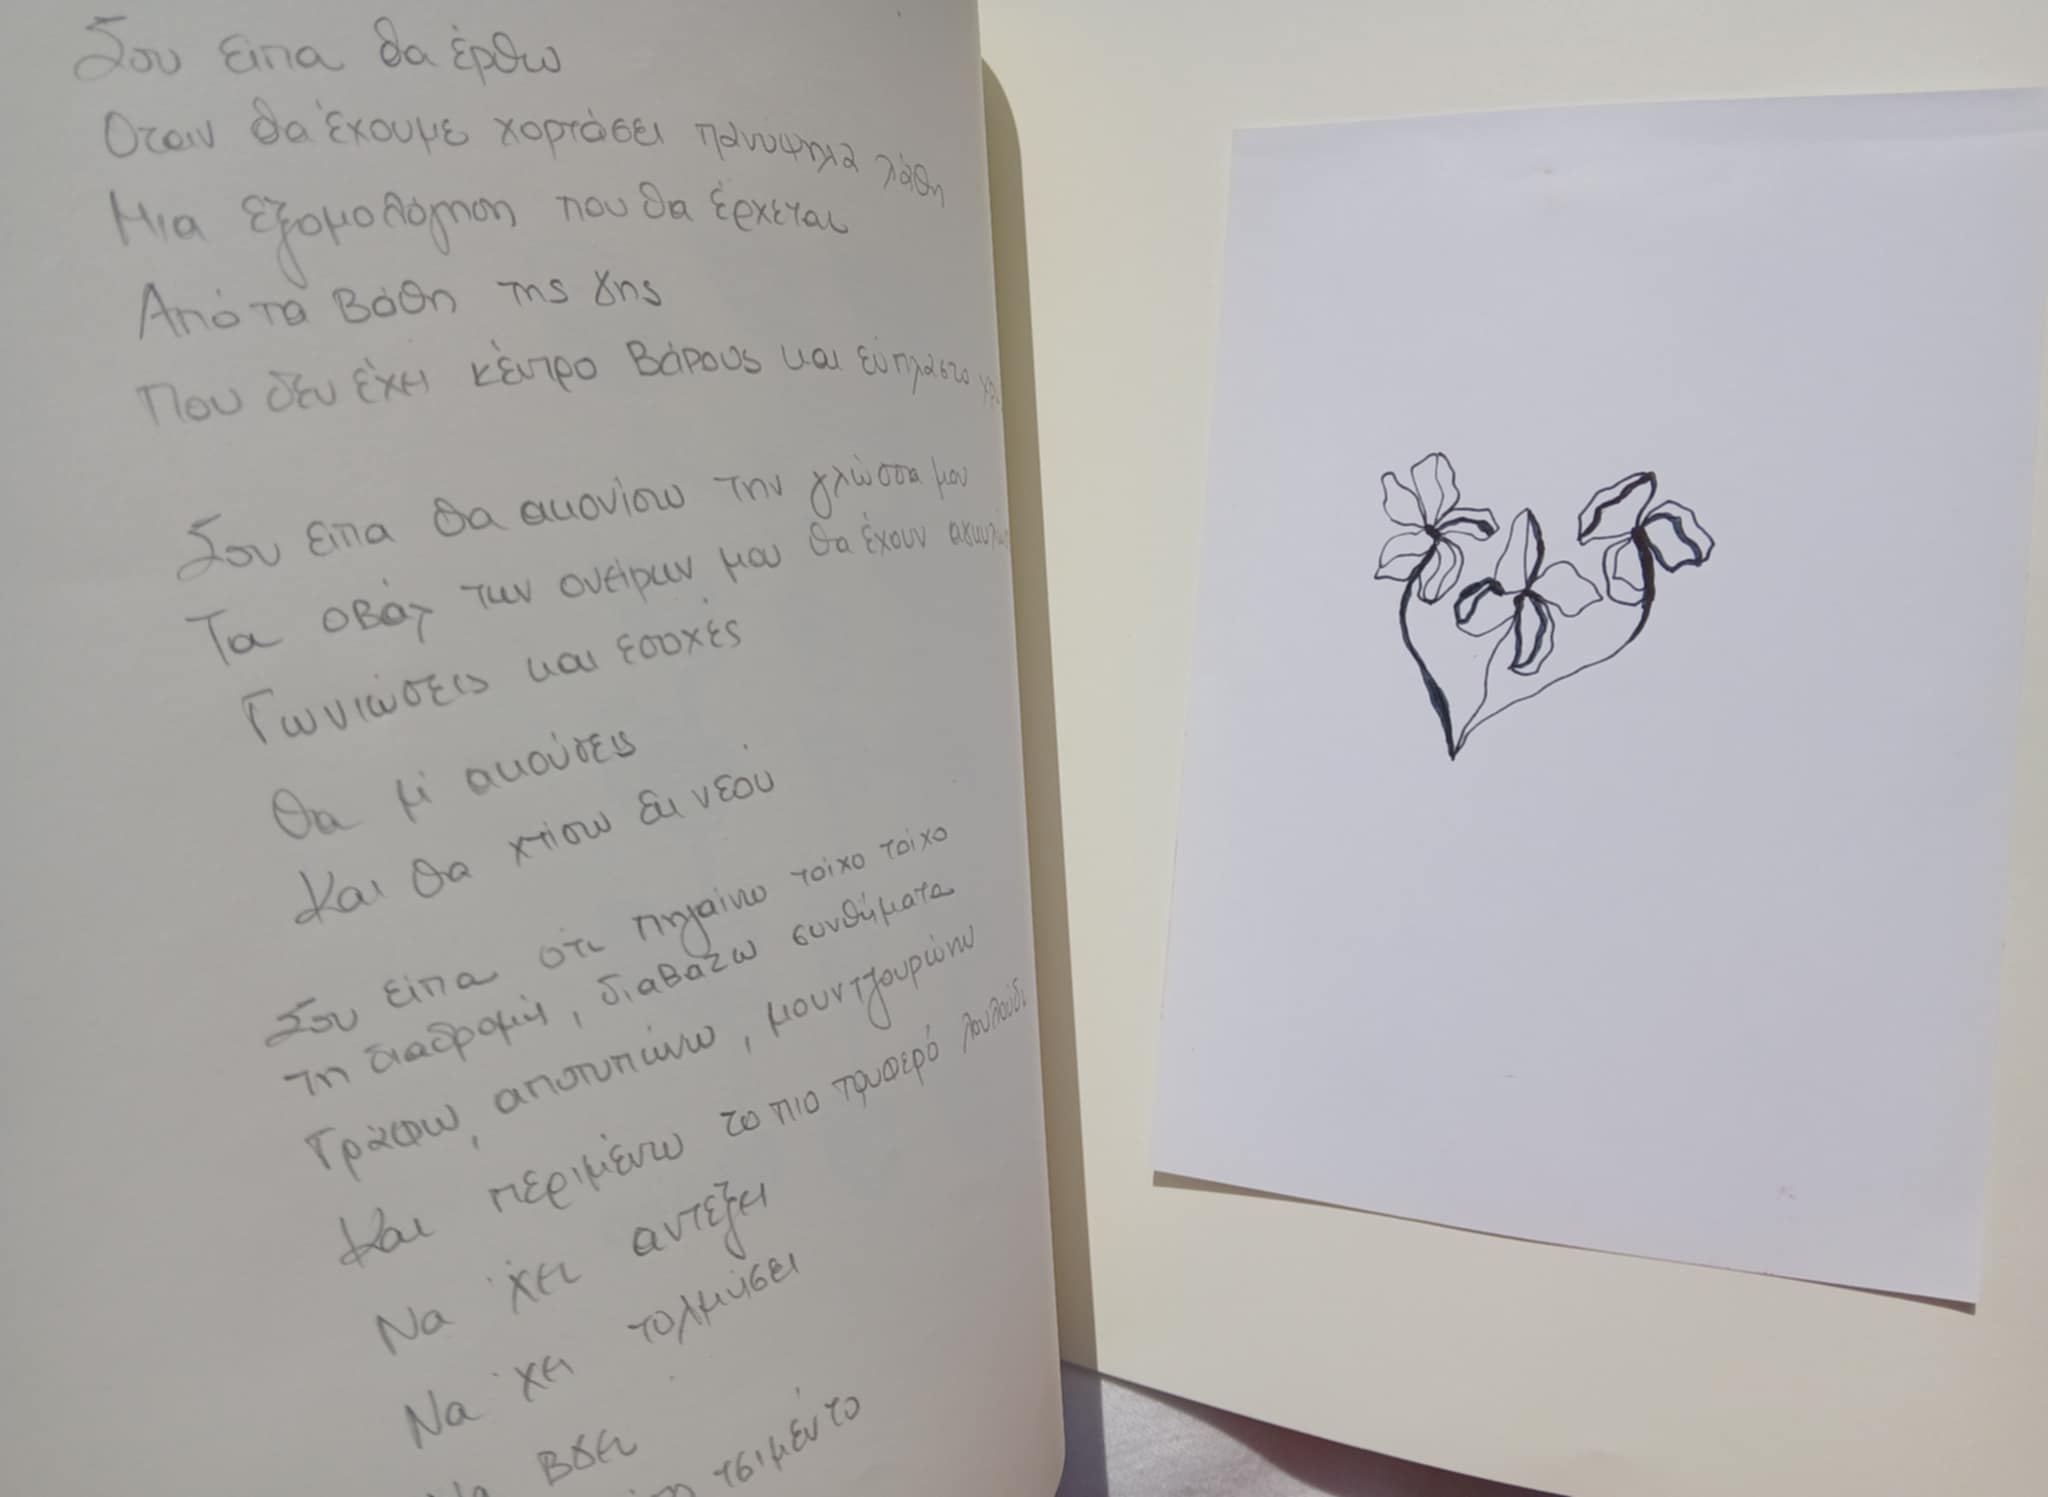 Σου ειπα θα έρθω
Οταν θα έχουμε χορτάσει πανυψηλα λάθη
Μια εξομολόγηση που θα έρχεται
Από τα βάθη της γης
Που δεν έχει κέντρο βάρους και εύπλαστο
Σου ειπα θα ακονίσω την γλώσσα μου
Τα οβάλ των ονείρων μου θα έχουν
Γωνιώσεις και εσοχές
Θα μ' ακούσεις
Και θα χτίσω εκ νέου
Σου είπα οτι πηγαίνω τοίχο τοίχο
τη διαδρομή, διαβαζω συνθήματα
Γράφω, αποτυπώνω, μουντζουρώνω
Και περιμένω το πιο τρυφερό λουλούδι
Να 'χει αντέξει
Να 'χει τολμήσει
βγει
τσιμέντο